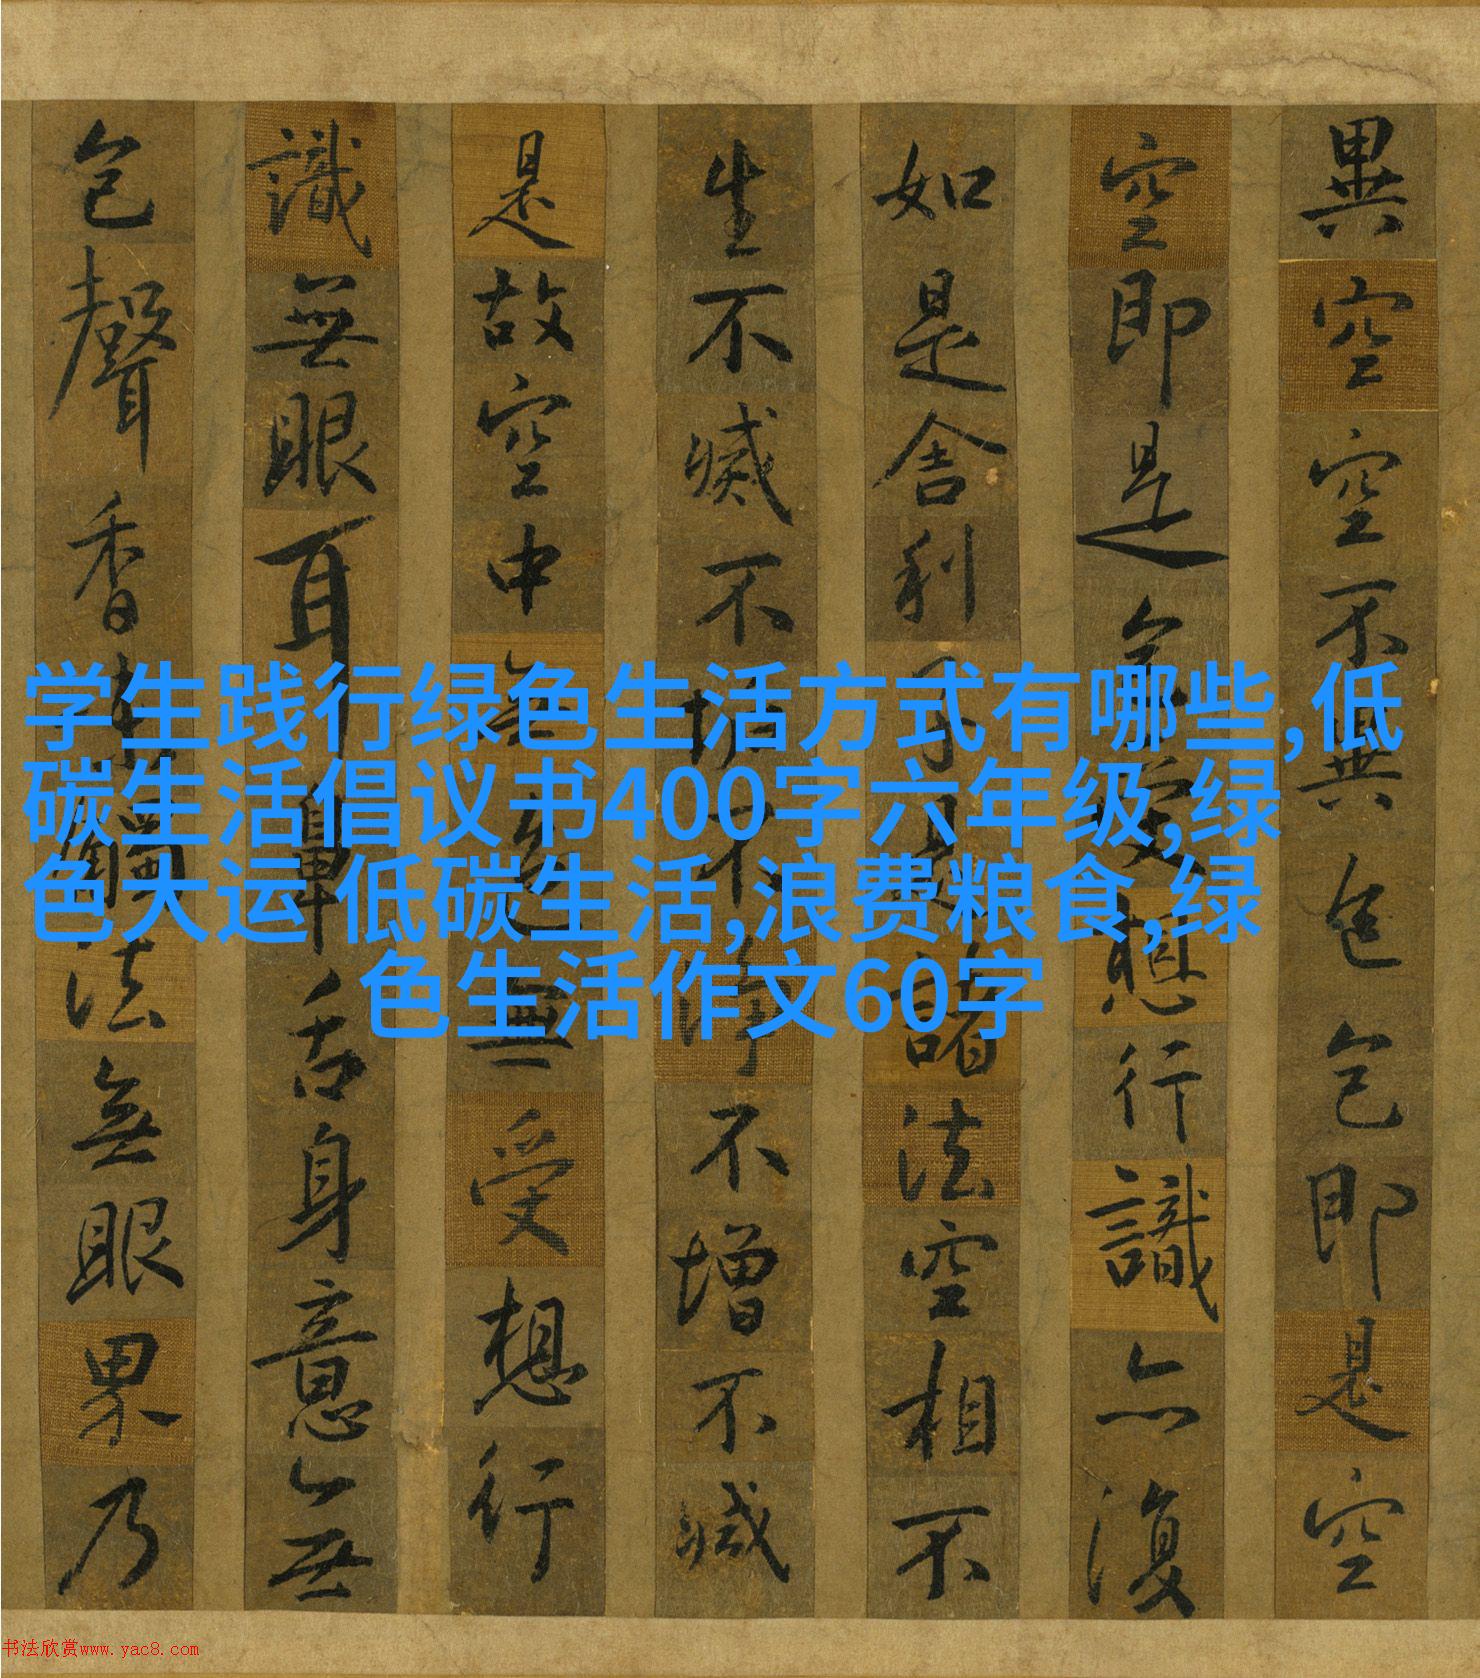 異空空不異色色即是空
空即是色受想行識亦復
如是舍利子是諸法空相不
生不滅不垢不淨不增不減
是故空中無色無受想行
識無眼耳鼻舌身意無
色聲香味觸法無眼界乃
学生践行绿色生活方式有哪些,低
碳生活倡议书400字六年级,绿
色大运 低碳生活,浪费粮食,绿
色生活作文60字
书法欣赏www.yac8.com